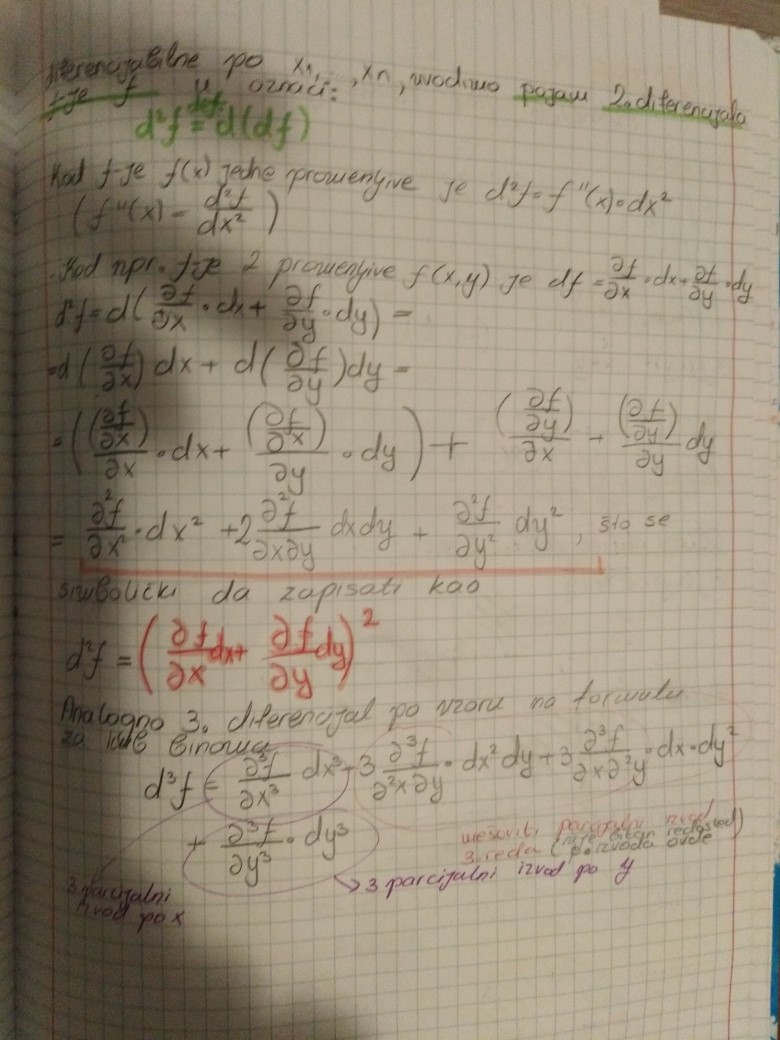 diferencijabilne po x₁, ..., xn, uvodimo pojam 2. diferencijala
f-je f u oznaci:
d²f ≝ d(df)
Kod f-je f(x) jedne promenljive je d²f = f''(x)·dx²
(f''(x) = d²f/dx²)
Kod npr. f-je 2 promenljive f(x,y) je df = ∂f/∂x · dx + ∂f/∂y · dy
d²f = d(∂f/∂x · dx + ∂f/∂y · dy) =
= d(∂f/∂x) dx + d(∂f/∂y) dy =
= ((∂f/∂x)/∂x · dx + (∂f/∂x)/∂y · dy) + (∂f/∂y)/∂x + (∂f/∂y)/∂y dy
= ∂²f/∂x² · dx² + 2 ∂²f/∂x∂y dxdy + ∂²f/∂y² dy², što se
simbolički da zapisati kao
d²f = (∂f/∂x dx + ∂f/∂y dy)²
Analogno 3. diferencijal po uzoru na formulu
za kub binoma
d³f = ∂³f/∂x³ dx³ + 3 ∂³f/∂²x∂y · dx²dy + 3 ∂³f/∂x∂²y · dx·dy²
+ ∂³f/∂y³ · dy³
mešoviti parcijalni izvod
3. reda (nije bitan redosled
izvoda ovde)
3 parcijalni izvod po y
3 parcijalni
izvod po x